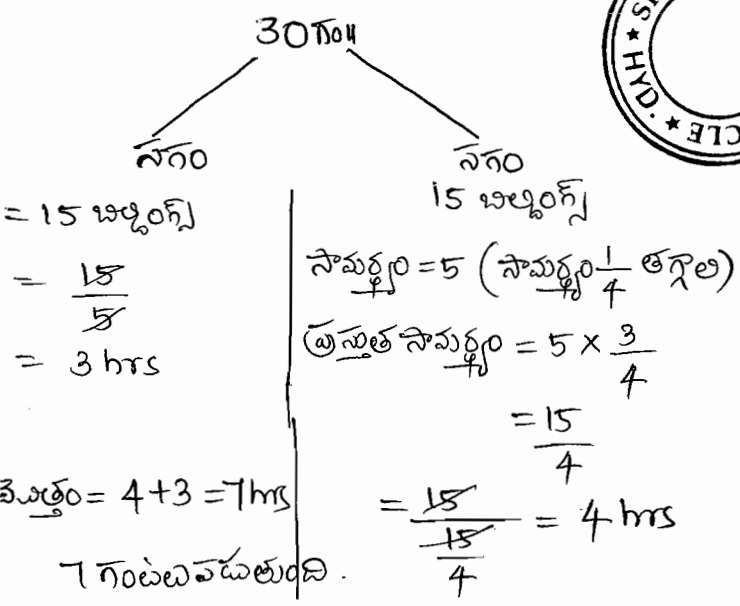 30గంll
సగం
= 15 బిల్డింగ్స్
= 15/5
= 3 hrs
మొత్తం = 4+3 = 7hrs
7 గంటలు పడుతుంది.
సగం
15 బిల్డింగ్స్
సామర్థ్యం = 5 (సామర్థ్యం 1/4 తగ్గాలి)
ప్రస్తుత సామర్థ్యం = 5 × 3/4
= 15/4
= 15/(15/4) = 4 hrs
HYD. ★